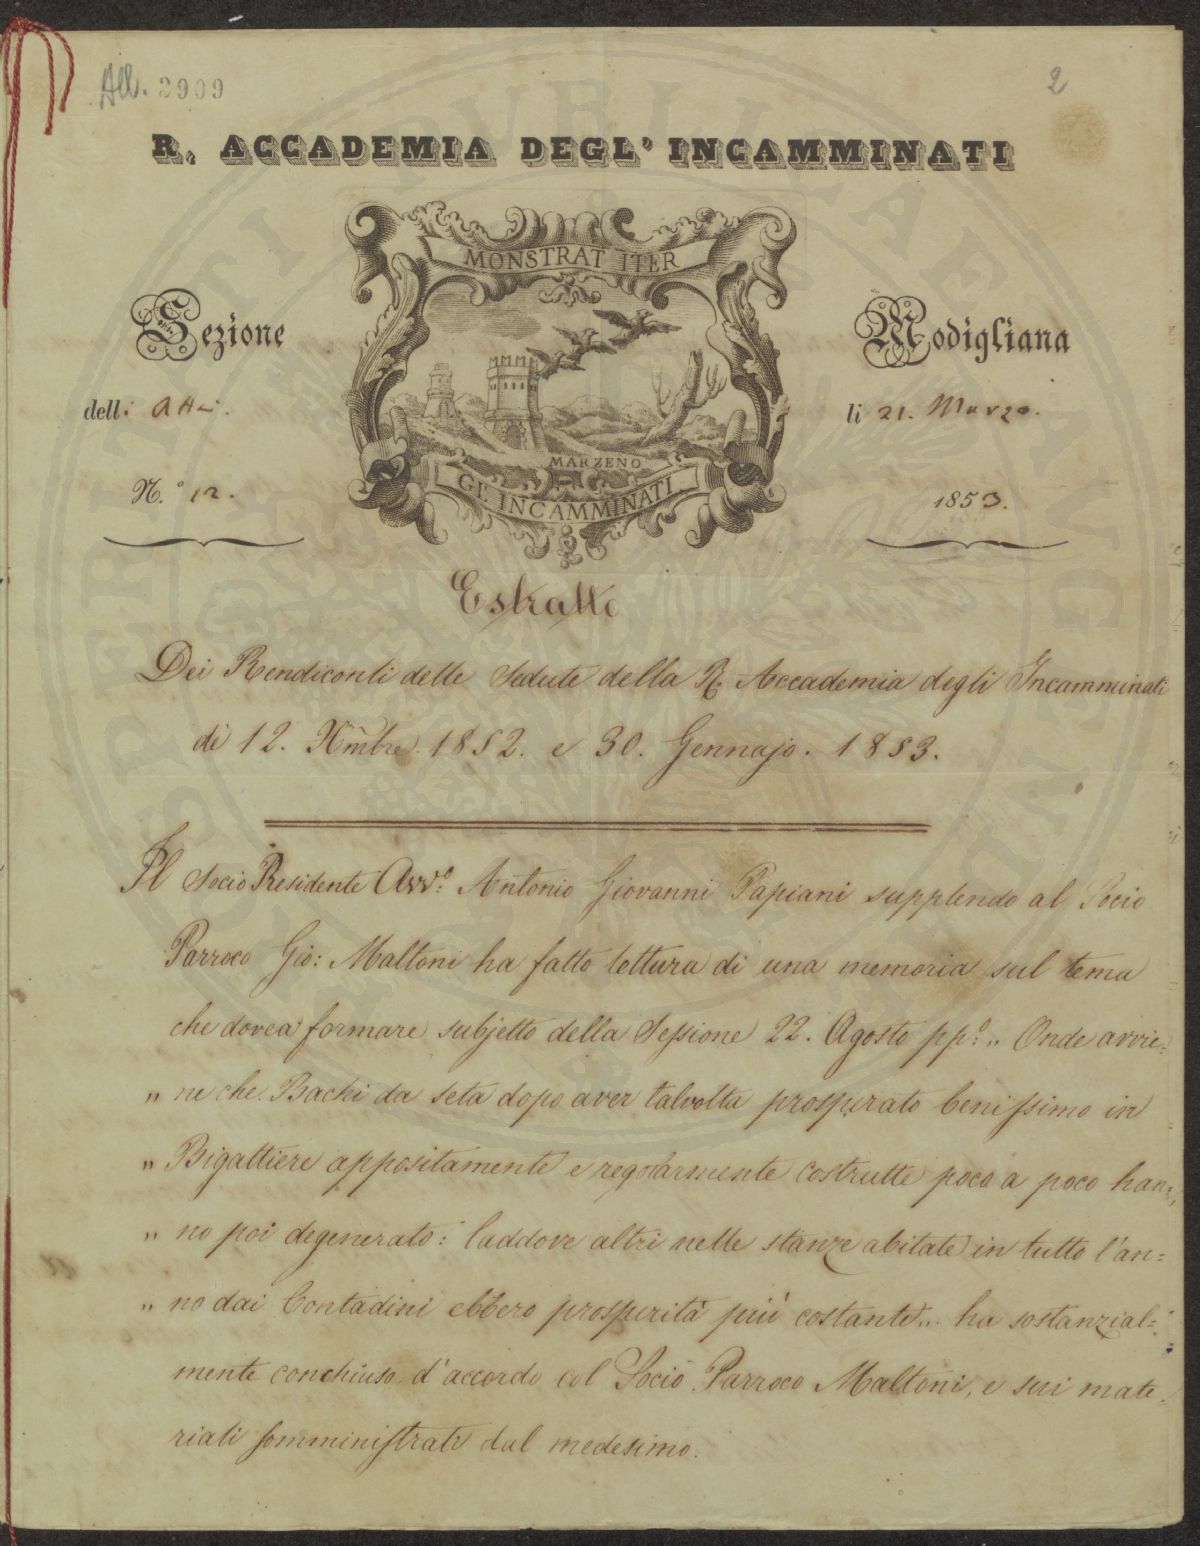 All. 2909
2
R. ACCADEMIA DEGL' INCAMMINATI
MONSTRAT ITER
Sezione
Modigliana
delli Atti.
li 21. Marzo.
MARZENO
GL' INCAMMINATI
N.° 12.
1853.
Estratto
Dei Rendiconti delle Sedute della R. Accademia degli Incamminati
di 12. Xmbre. 1852. e 30. Gennajo. 1853.
Il Socio Presidente Avv.° Antonio Giovanni Papiani supplendo al Socio
Parroco Gio: Maltoni ha fatto lettura di una memoria sul tema
che dovea formare subjetto della Sessione 22. Agosto pp.° „ Onde avvie=
„ ne che Bachi da seta dopo aver talvolta prosperato benissimo in
„ Bigattiere appositamente e regolarmente costrutte poco a poco han=
„ no poi degenerato: laddove altri nelle stanze abitate in tutto l'an=
„ no dai Contadini ebbero prosperità più costante „. ha sostanzial=
mente conchiuso d'accordo col Socio Parroco Maltoni, e sui mate
riali somministrati dal medesimo.